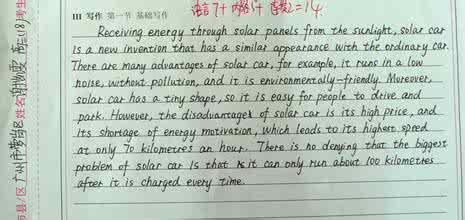 III 写作 第一节 基础写作
语言7+内容5+连贯2=14
Receiving energy through solar panels from the sunlight, solar car
is a new invention that has a similar appearance with the ordinary car.
There are many advantages of solar car, for example, it runs in a low
noise, without pollution, and it is environmentally-friendly. Moreover,
solar car has a tiny shape, so it is easy for people to drive and
park. However, the disadvantages of solar car is its high price, and
its shortage of energy motivation, which leads to its highest speed
at only 70 kilometres an hour. There is no denying that the biggest
problem of solar car is that it can only run about 100 kilometres
after it is charged every time.
市县/区 广州市 姓名